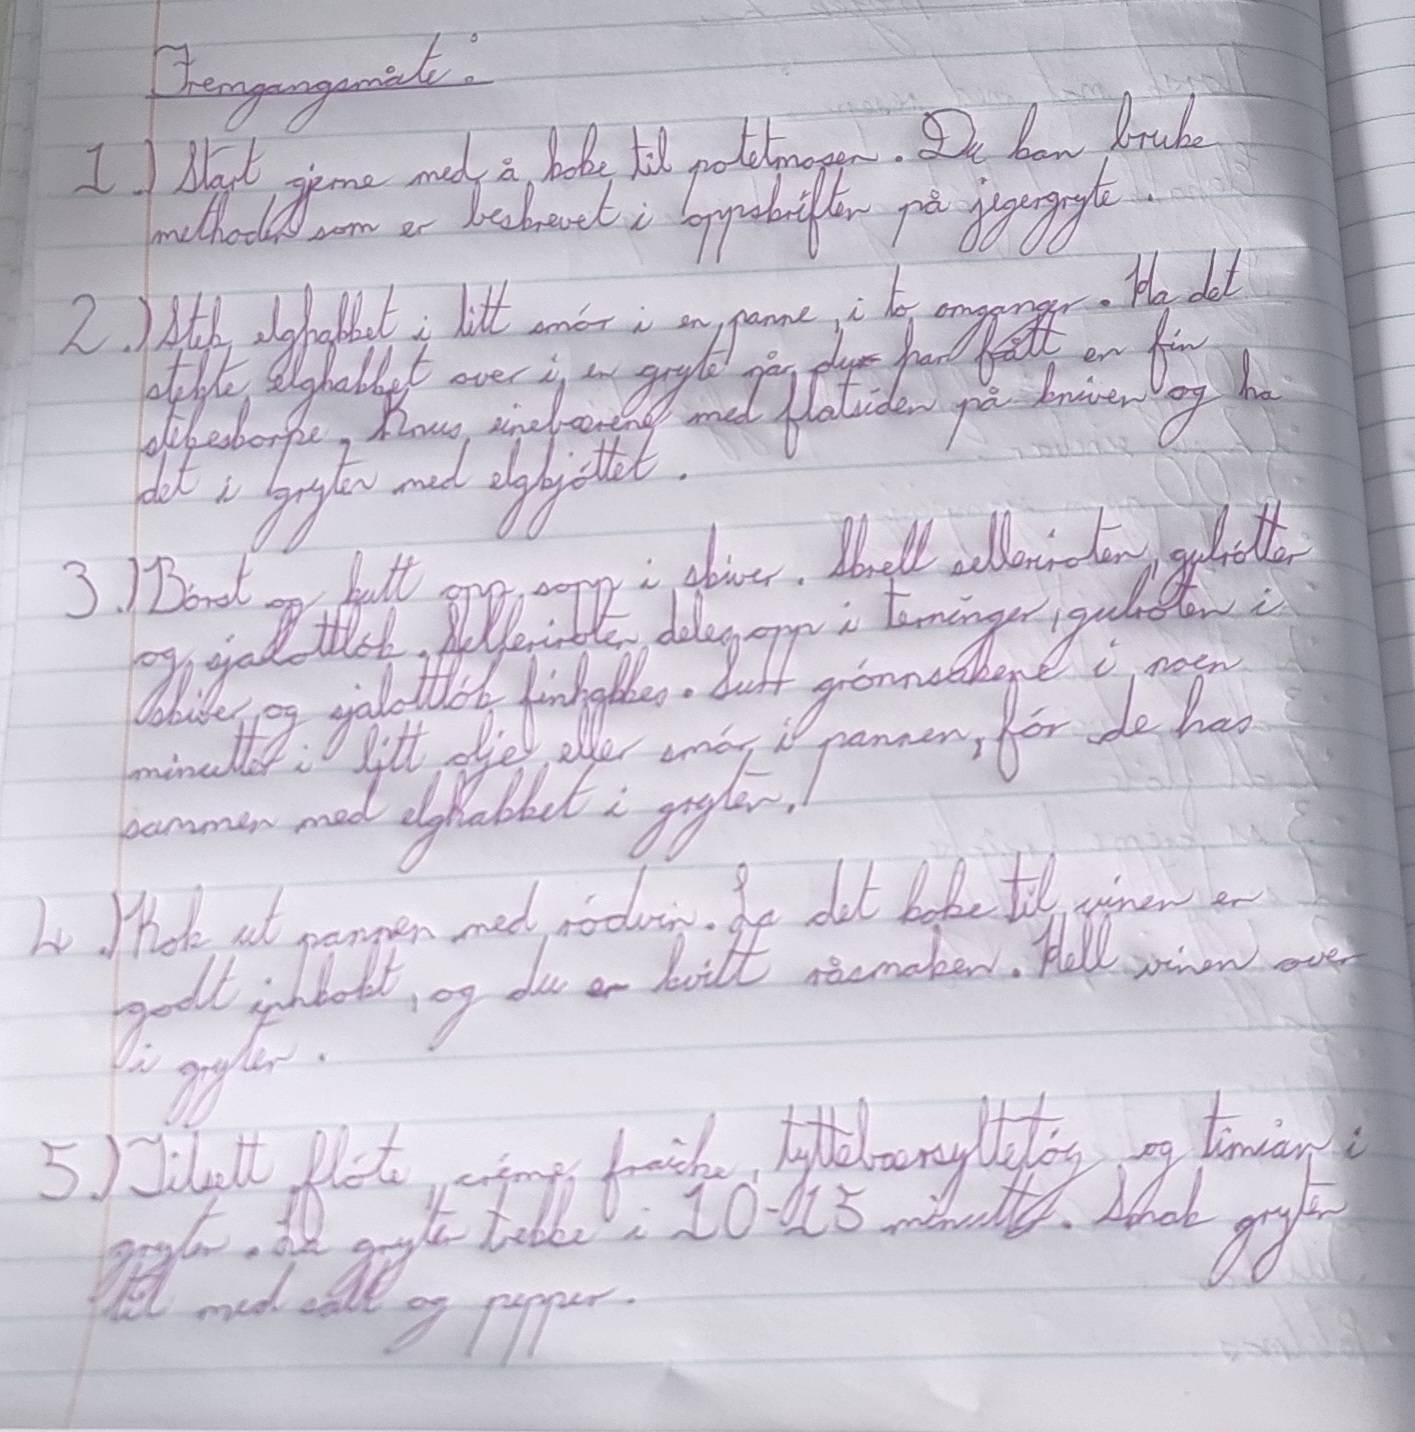 Fremgangsmåte:
1.) Start gjerne med å koke til potetmosen. Du kan bruke
methoden som er beskrevet i oppskriften på jegergryte.
2.) Stek elghakket i litt smör i en panne, i to omganger. Ha det
stekte elghakket over i en gryte når du har fått en fin
stekeskorpe. Knus einebærene med flatsiden på kniven og ha
det i gryten med elgkjöttet.
3.) Börst og kutt opp sopp i skiver. Skrell selleriroten, gulrötter
og sjalottlök. Selleriroten deles opp i terninger, gulroten i
skiver og sjalottlök finhakkes. Surr grönnsakene i noen
minutter i litt olje eller smör i pannen, för de has
sammen med elghakket i gryten.
4.) Kok ut pannen med rödvin. La det koke til vinen er
godt innkokt, og du er kvitt råsmaken. Hell vinen over
i gryten.
5.) Tilsett flöte, créme fraiche, tyttebærsyltetöy og timian i
gryten. La gryten trekke i 10-15 minutter. Smak gryten
til med salt og pepper.